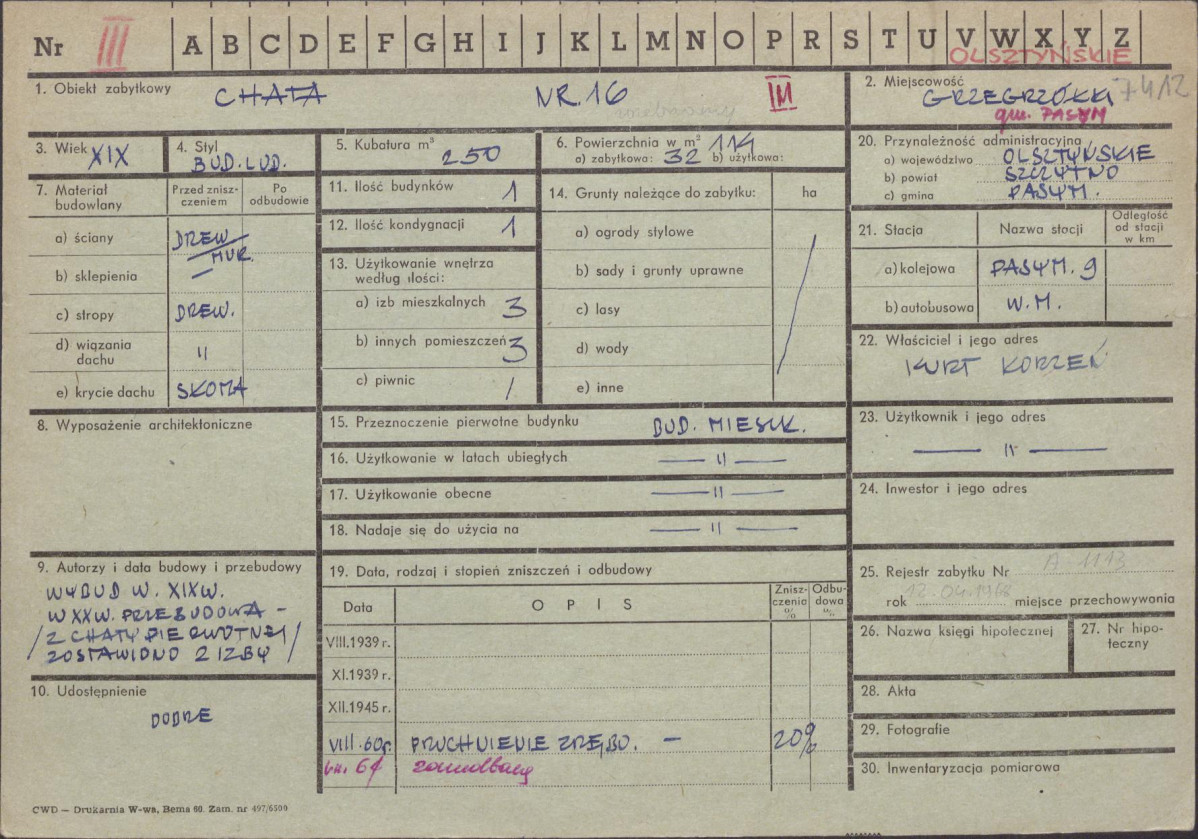 Nr III A B C D E F G H I J K L M N O P R S T U V W X Y Z
OLSZTYŃSKIE
1. Obiekt zabytkowy CHATA NR. 16 III
2. Miejscowość 7412
GRZEGRZÓŁKI
gm. PASYM
3. Wiek XIX
4. Styl
BUD. LUD.
5. Kubatura m³ 250
6. Powierzchnia w m² 114
a) zabytkowa: 32 b) użytkowa:
20. Przynależność administracyjna
a) województwo OLSZTYŃSKIE
b) powiat SZCZYTNO
c) gmina PASYM.
7. Materiał budowlany
Przed znisz-
czeniem
Po
odbudowie
a) ściany DREW
MUR.
b) sklepienia —
c) stropy DREW.
d) wiązania
dachu "
e) krycie dachu SŁOMA
11. Ilość budynków 1
12. Ilość kondygnacji 1
13. Użytkowanie wnętrza
według ilości:
a) izb mieszkalnych 3
b) innych pomieszczeń 3
c) piwnic /
14. Grunty należące do zabytku: ha
a) ogrody stylowe
b) sady i grunty uprawne
c) lasy
d) wody
e) inne
21. Stacja Nazwa stacji
Odległość
od stacji
w km
a) kolejowa PASYM. 9
b) autobusowa W.M.
22. Właściciel i jego adres
KURT KORZEŃ
8. Wyposażenie architektoniczne
15. Przeznaczenie pierwotne budynku BUD. MIESZK.
16. Użytkowanie w latach ubiegłych — " —
17. Użytkowanie obecne — " —
18. Nadaje się do użycia na — " —
23. Użytkownik i jego adres
— " —
24. Inwestor i jego adres
9. Autorzy i data budowy i przebudowy
WYBUD W. XIXW.
W XXW. PRZEBUDOWA –
/ Z CHATY PIERWOTNEJ
ZOSTAWIONO 2 IZBY /
10. Udostępnienie
DOBRE
19. Data, rodzaj i stopień zniszczeń i odbudowy
Data OPIS
Znisz-
czenia
%
Odbu-
dowa
%
VIII.1939 r.
XI.1939 r.
XII.1945 r.
VIII.60r. PRUCHNIENIE ZRĘBU. — 20%
67
25. Rejestr zabytku Nr A-1113
rok 12.04.1968 miejsce przechowywania
26. Nazwa księgi hipotecznej
27. Nr hipo-
teczny
28. Akta
29. Fotografie
30. Inwentaryzacja pomiarowa
CWD — Drukarnia W-wa, Bema 60. Zam. nr 497/6500